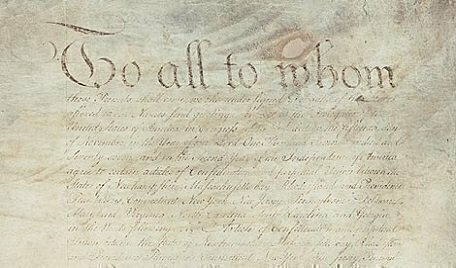 To all to whom
these Presents shall come, we the under signed Delegates of the States
affixed to our Names send greeting. Whereas the Delegates of the
United States of America in Congress assembled did on the fifteenth day
of November in the Year of our Lord One Thousand Seven Hundred and
Seventy seven, and in the Second Year of the Independence of America
agree to certain articles of Confederation and perpetual Union between the
States of Newhampshire, Massachusetts-bay, Rhodeisland and Providence
Plantations, Connecticut, New York, New Jersey, Pennsylvania, Delaware,
Maryland, Virginia, North-Carolina, South-Carolina and Georgia
in the Words following, viz. Articles of Confederation and perpetual
Union between the states of Newhampshire, Massachusetts-bay, Rhodeisland
and Providence Plantations, Connecticut, New York, New Jersey,